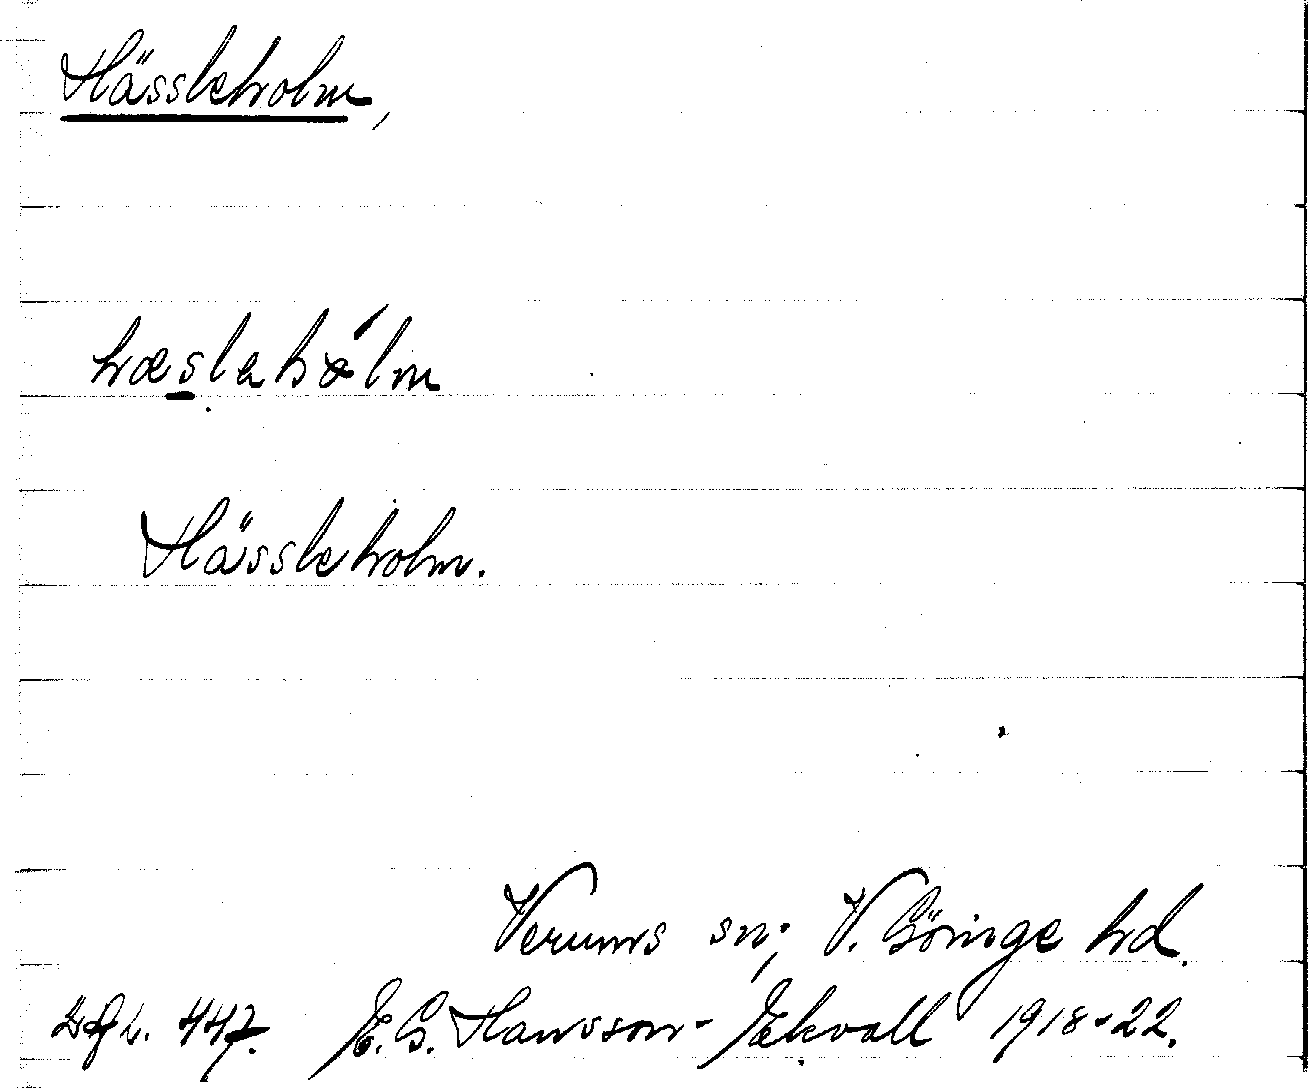 Hässleholm,
hæslehålm
Hässleholm.
Verums sn; V. Göinge hd.
447. E. G. Hansson-Ekvall 1918-22.